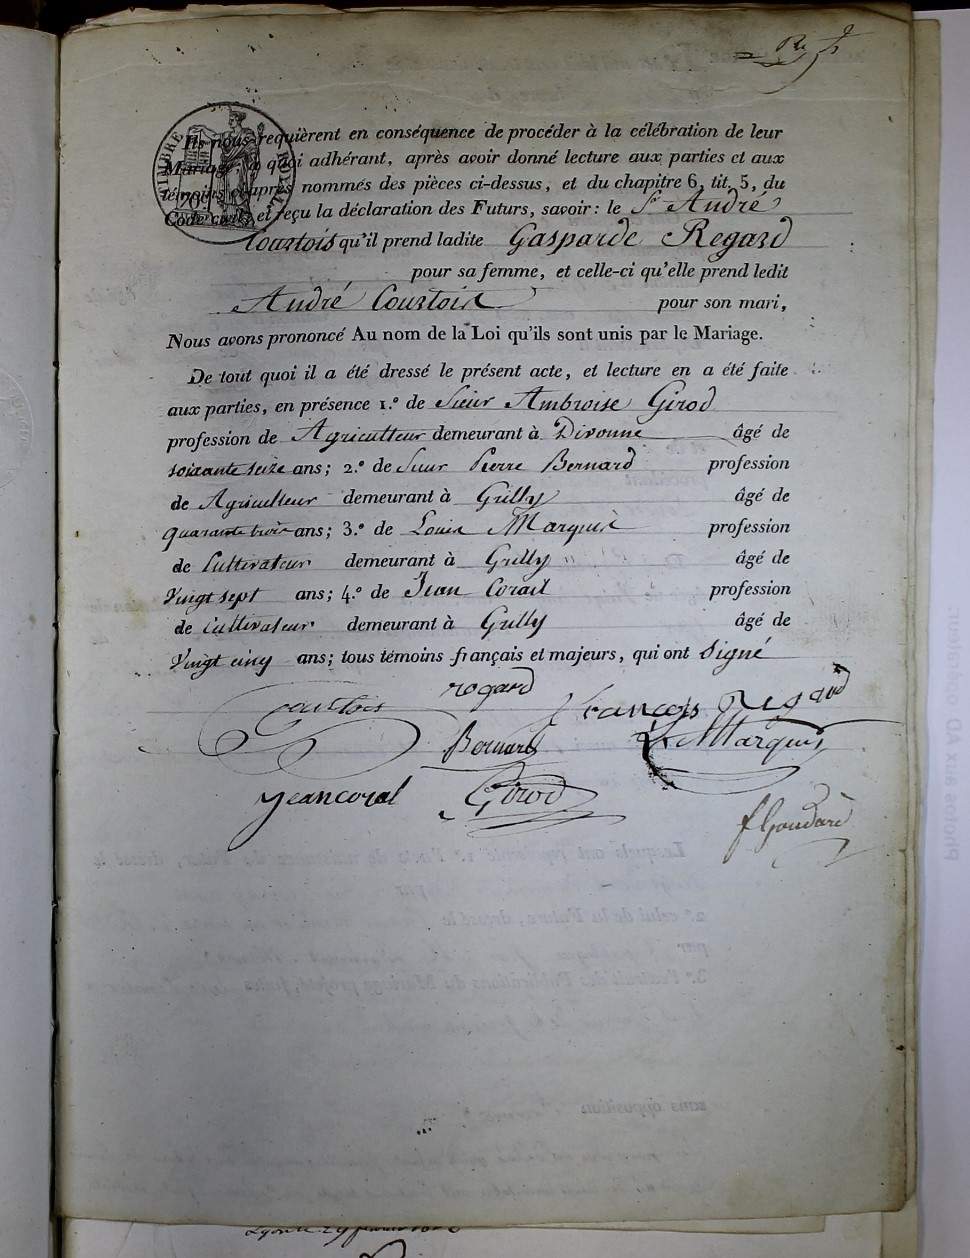 Ils nous requièrent en conséquence de procéder à la célébration de leur
Mariage, à quoi adhérant, après avoir donné lecture aux parties et aux
témoins ci-après nommés des pièces ci-dessus, et du chapitre 6, tit. 5, du
Code civil, et reçu la déclaration des Futurs, savoir: le Sr André
Courtois qu'il prend ladite Gasparde Regard
pour sa femme, et celle-ci qu'elle prend ledit
André Courtois pour son mari,
Nous avons prononcé Au nom de la Loi qu'ils sont unis par le Mariage.
De tout quoi il a été dressé le présent acte, et lecture en a été faite
aux parties, en présence 1.º de Sieur Ambroise Girod
profession de Agriculteur demeurant à Divonne âgé de
soixante seize ans; 2.º de Sieur Pierre Bernard profession
de Agriculteur demeurant à Grilly âgé de
quarante trois ans; 3.º de Louis Marquis profession
de Cultivateur demeurant à Grilly âgé de
Vingt sept ans; 4.º de Jean Corail profession
de Cultivateur demeurant à Grilly âgé de
Vingt cinq ans; tous témoins français et majeurs, qui ont Signé
Courtois rogard françois Regard
Bernard L. Marquis
jeancoral Girod
f Goudard
TIMBRE ROYAL
70
Photos aux AD opérateur: